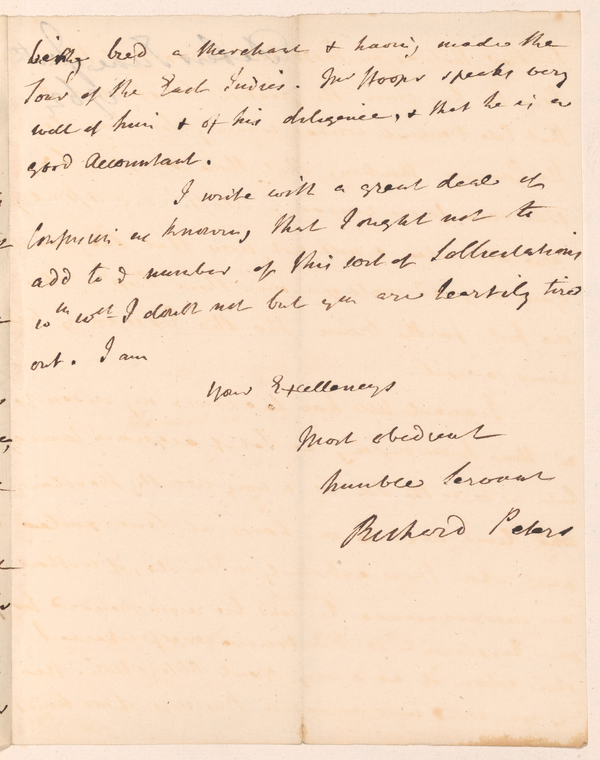 being bred a Merchant & having made the
Tour of the East Indies. Mr Hoops speaks very
well of him & of his diligence, & that he is a
good Accountant.
I write with a great deal of
Confusion as knowing that I ought not to
add to ye number of this sort of Sollicitations
wth wch I doubt not but you are heartily tired
out. I am
Your Excellencys
Most obedient
humble Servant
Richard Peters